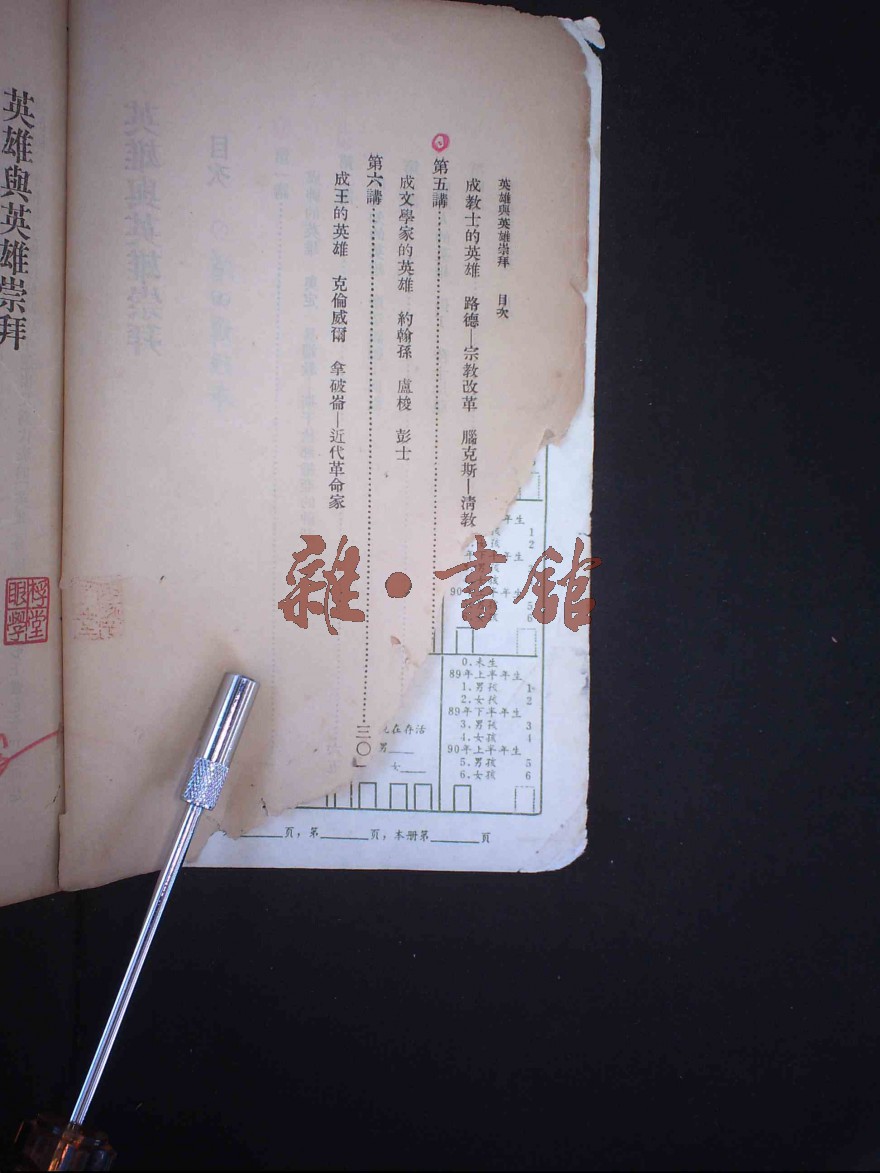 英雄與英雄崇拜　目次
成教士的英雄　路德—宗教改革　腦克斯—清教
第五講
成文學家的英雄　約翰孫　盧梭　彭士
第六講………三〇
成王的英雄　克倫威爾　拿破崙—近代革命家
英雄與英雄崇拜
雜·書館
年生
1
2
年生
90
5
6
0.未生
89年上半年生
1.男孩 1
2.女孩 2
89年下半年生
3.男孩 3
4.女孩 4
90年上半年生
5.男孩 5
6.女孩 6
在存活
男
女
頁，第　頁，本册第　頁